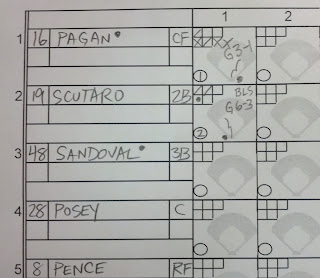 1 2
1 16 PAGAN• CF G3-1 1
2 19 SCUTARO 2B BLS G6-3 2
3 48 SANDOVAL• 3B
4 28 POSEY C
5 8 PENCE RF